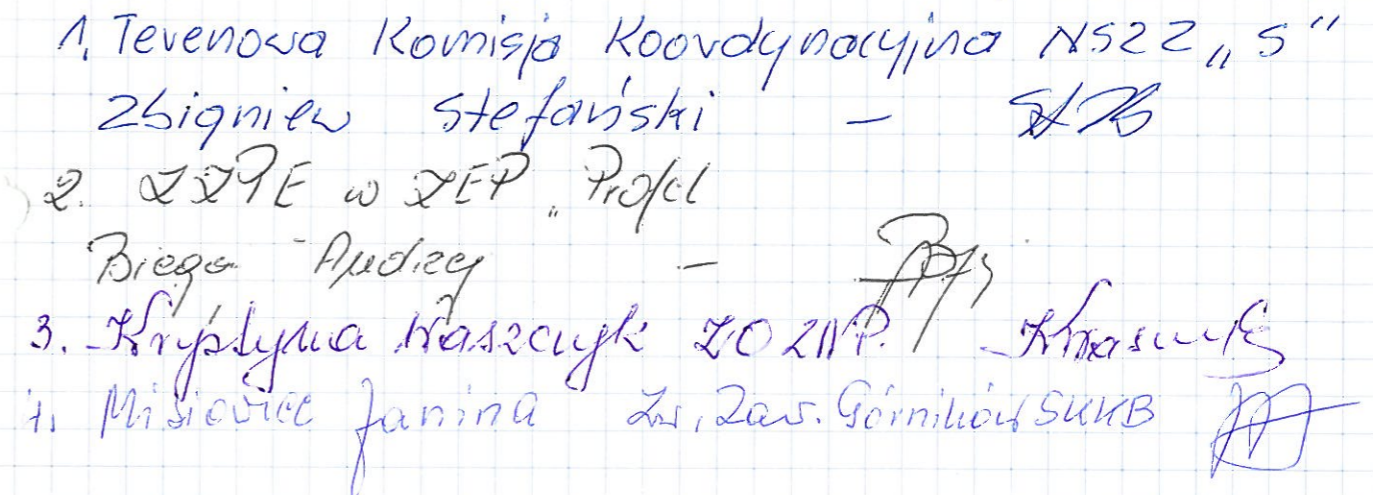 1. Terenowa Komisja Koordynacyjna NSZZ „S"
Zbigniew Stefański –
2. ZZPE w ZEP „Profel
Biega Andrzej –
3. Krystyna Kraszczyk ZO ZNP.
4. Misiowiec Janina Zw. Zaw. Górników SKKB